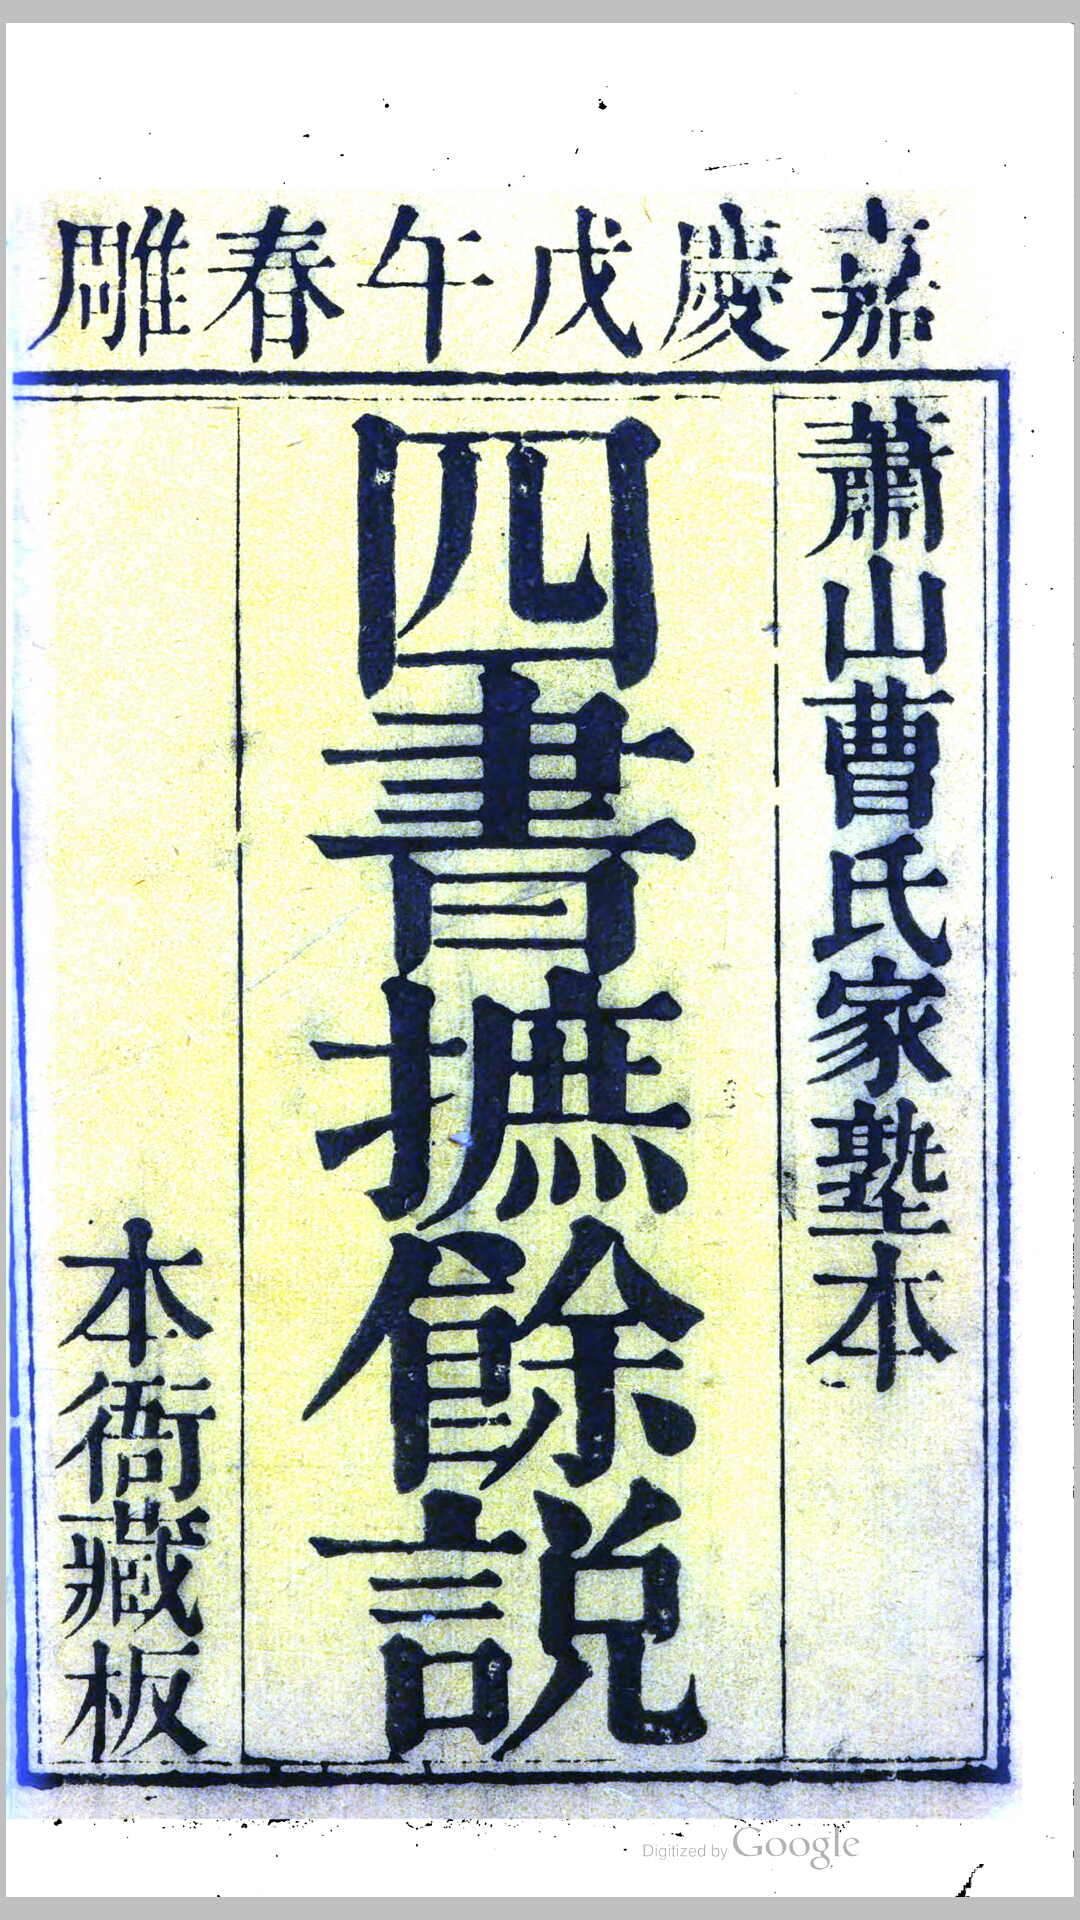 嘉慶戊午春雕
蕭山曹氏家塾本
四書摭餘說
本衙藏板
Digitized by Google